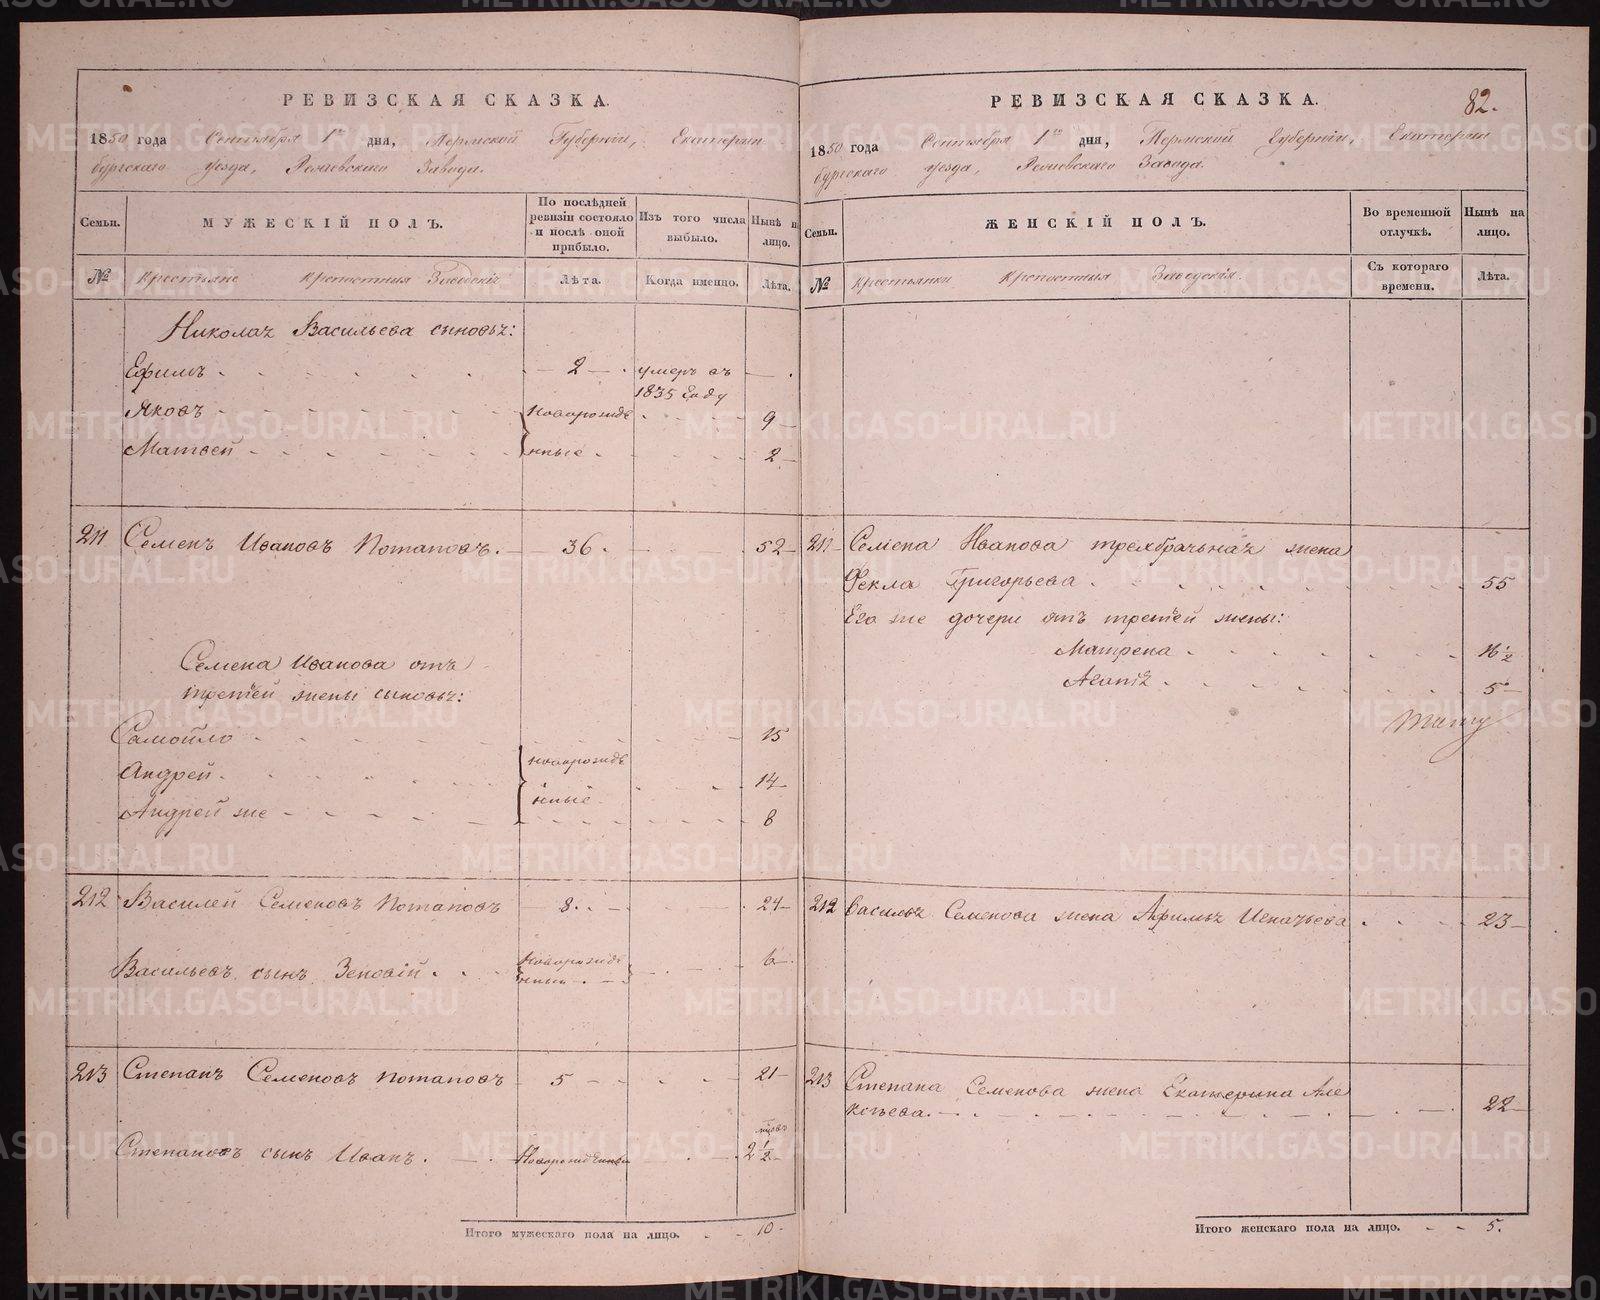 РЕВИЗСКАЯ СКАЗКА.
1850 года Сентября 1го дня, Пермской Губернiи, Екатерин
бургскаго уезда, Завода.
Семьи.
МУЖЕСКIЙ ПОЛЪ.
По послѣдней ревизiи состояло и послѣ оной прибыло.
Изъ того числа выбыло.
Нынѣ на лицо.
№
Крестьяне крепостныя Заводскiя
Лѣта.
Когда именно.
Лѣта.
Николая Васильева сыновья:
Ефимъ 2 умеръ въ
1835 Году
Яковъ новорожде 9
Матвей нные 2
211 Семенъ Ивановъ Потаповъ. 36. 52
Семена Иванова отъ
третьей жены сыновья:
Самойло 15
новорожде
Андрей 14
нные
Андрей же 8
212 Василей Семеновъ Потаповъ 8. 24
Васильевъ сынъ Зеновiй новорожде 6
нный
213 Степанъ Семеновъ Потаповъ 5 21
Степановъ сынъ Иванъ. Новорожденный 2 1/2
Итого мужескаго пола на лицо. 10
РЕВИЗСКАЯ СКАЗКА.
82.
1850 года Сентября 1го дня, Пермской Губернiи, Екатерин
бургскаго уезда, Завода.
Семьи.
ЖЕНСКIЙ ПОЛЪ.
Во временной отлучкѣ.
Нынѣ на лицо.
№
Крестьянки крепостныя Заводскiя.
Съ котораго времени.
Лѣта.
211 Семена Иванова жена
Фекла Григорьева 55
Его же дочери отъ третьей жены:
Матрена 16 1/2
5
212 Василья Семенова жена Афимья Игнатьева 23
213 Степана Семенова жена Екатерина Але
ксѣева. 22
Итого женскаго пола на лицо. 5.
METRIKI.GASO-URAL.RU